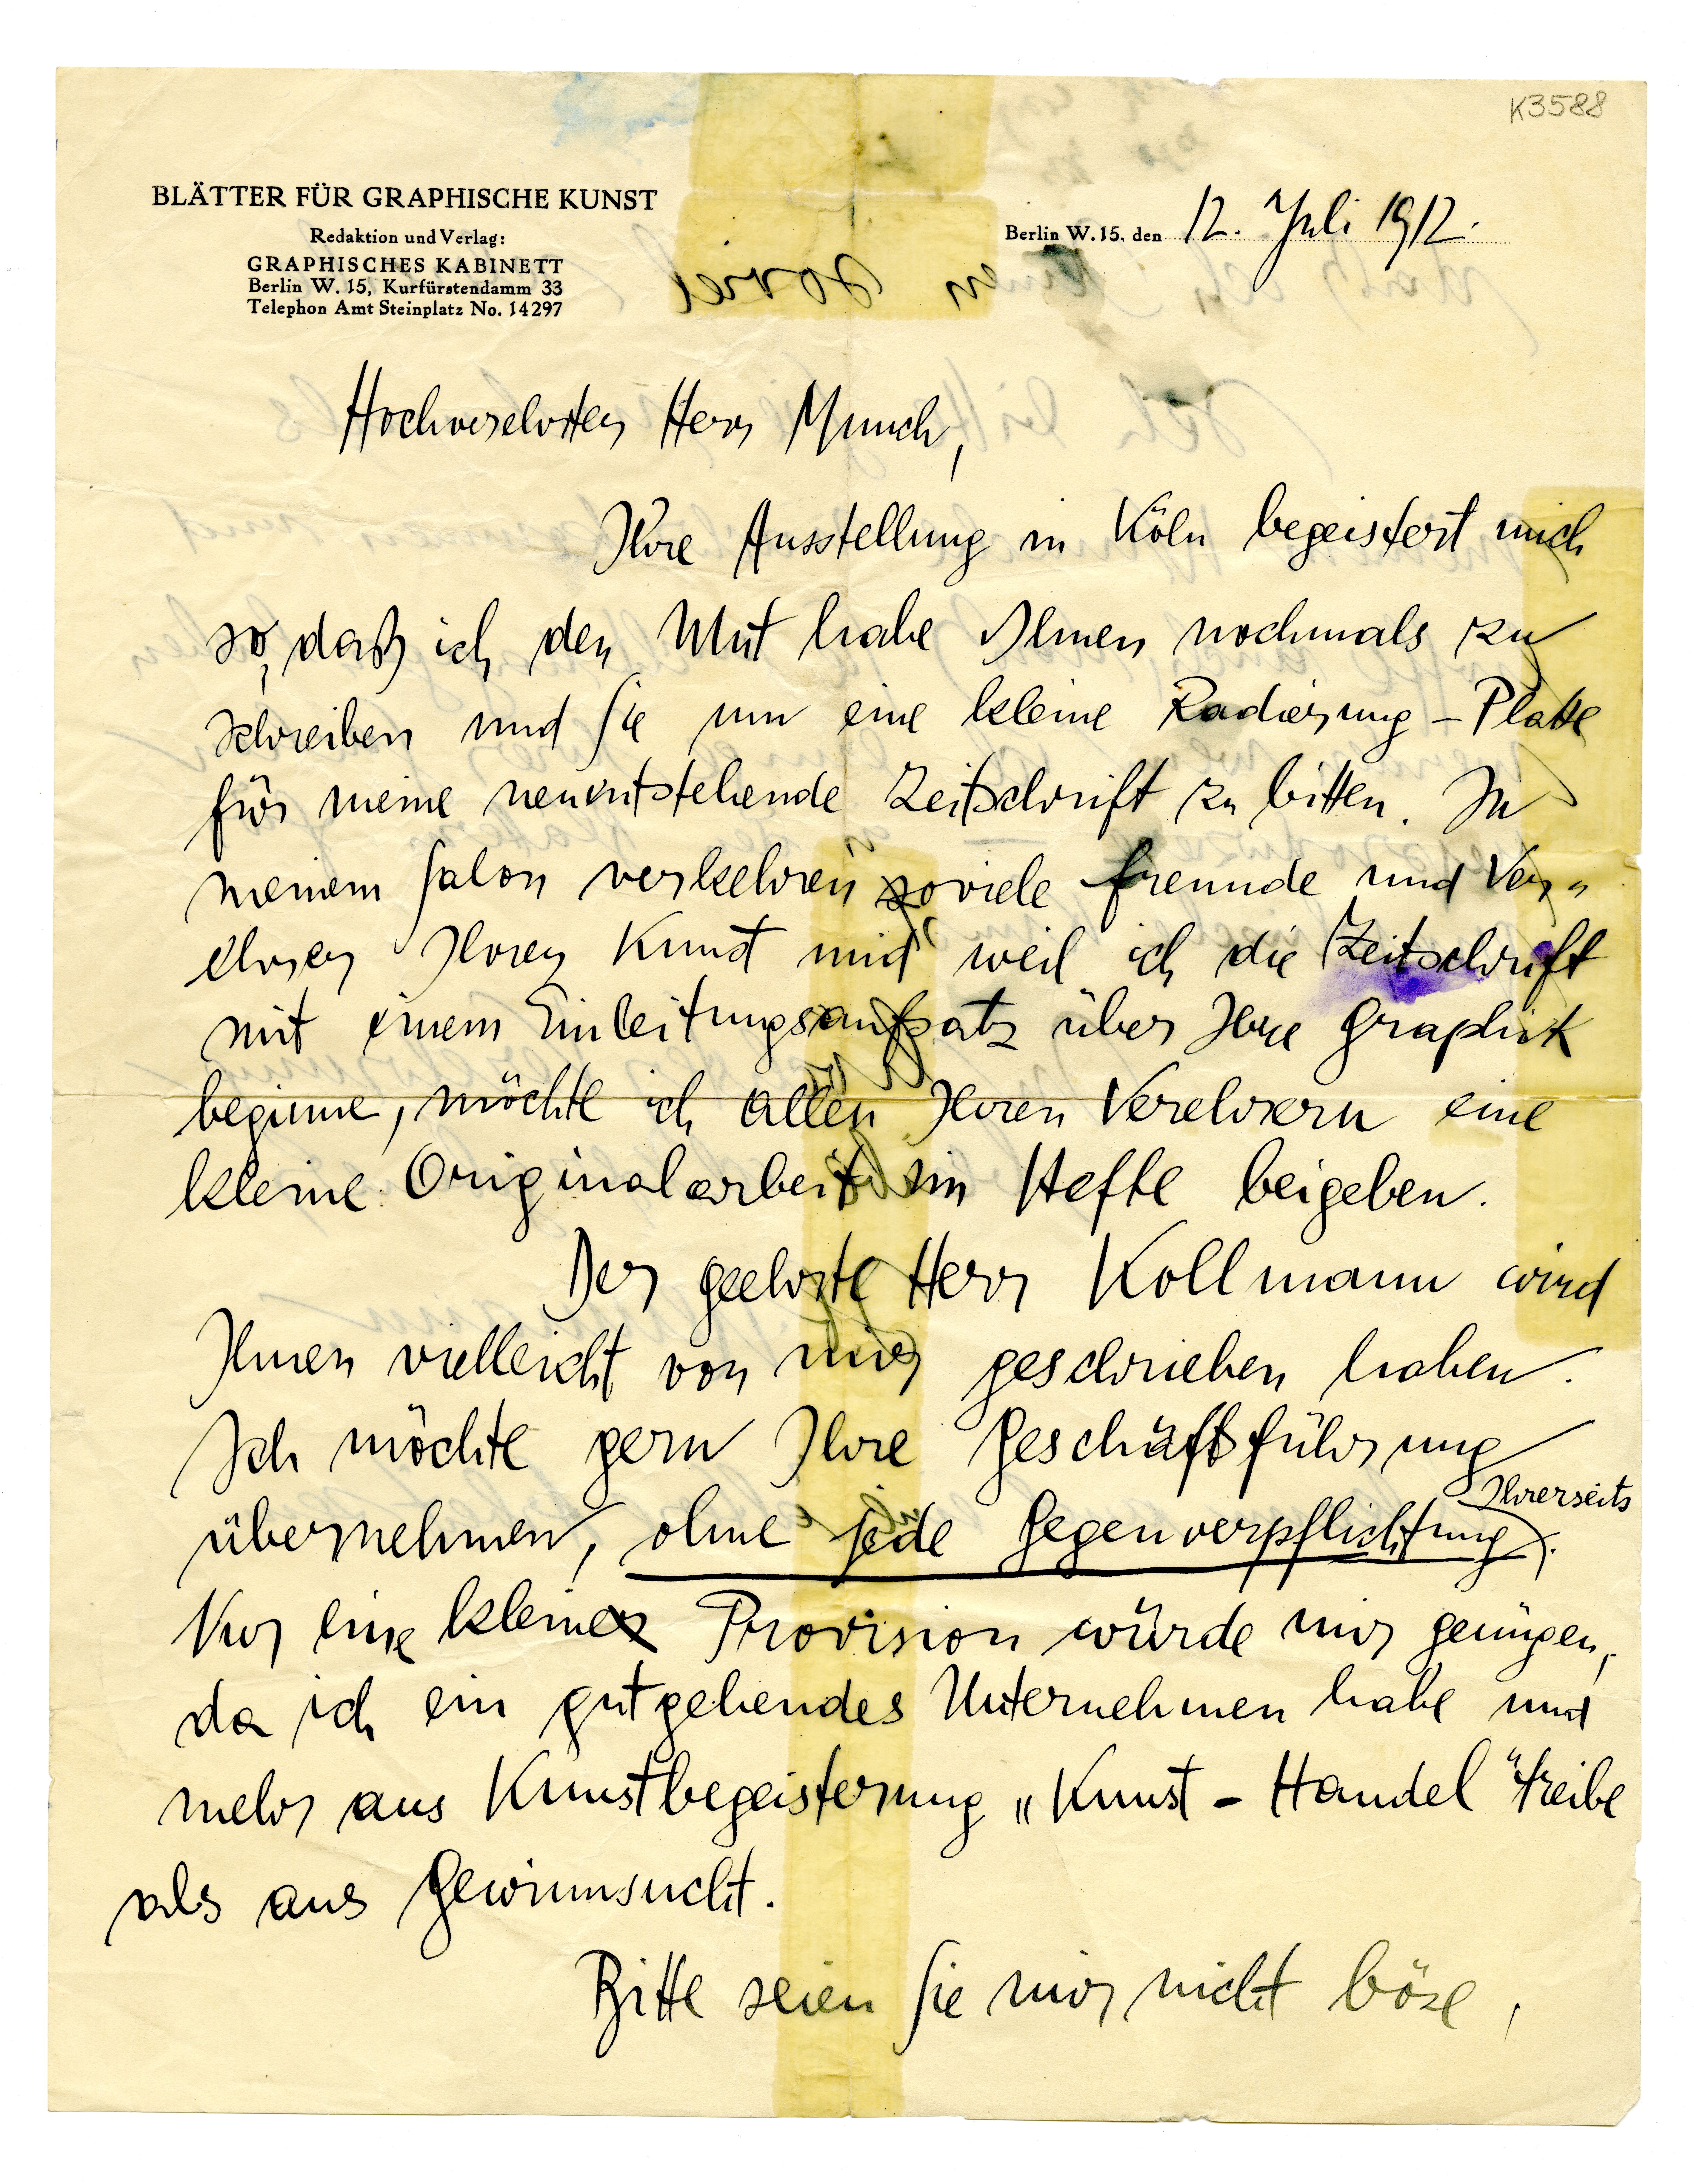 K3588
BLÄTTER FÜR GRAPHISCHE KUNST
Redaktion und Verlag:
GRAPHISCHES KABINETT
Berlin W. 15, Kurfürstendamm 33
Telephon Amt Steinplatz No. 14297
Berlin W. 15, den 12. Juli 1912.
Hochverehrter Herr Munch,
Ihre Ausstellung in Köln begeistert mich
so, daß ich den Mut habe Ihnen nochmals zu
schreiben und Sie um eine kleine Radierung-Platte
für meine neuentstehende Zeitschrift zu bitten. In
meinem Salon verkehren soviele Freunde und Ver-
ehrer Ihrer Kunst und weil ich die Zeitschrift
mit einem Einleitungsaufsatz über Ihre Graphik
beginne, möchte ich allen Ihren Verehrern eine
kleine Originalarbeit im Hefte beigeben.
Der geehrte Herr Kollmann wird
Ihnen vielleicht von mir geschrieben haben.
Ich möchte gern Ihre Geschäftsführung
übernehmen, ohne jede Gegenverpflichtung Ihrerseits.
Nur eine kleine Provision würde mir genügen,
da ich ein gutgehendes Unternehmen habe und
mehr aus Kunstbegeisterung „Kunst-Handel" treibe
als aus Gewinnsucht.
Bitte seien Sie mir nicht böse,